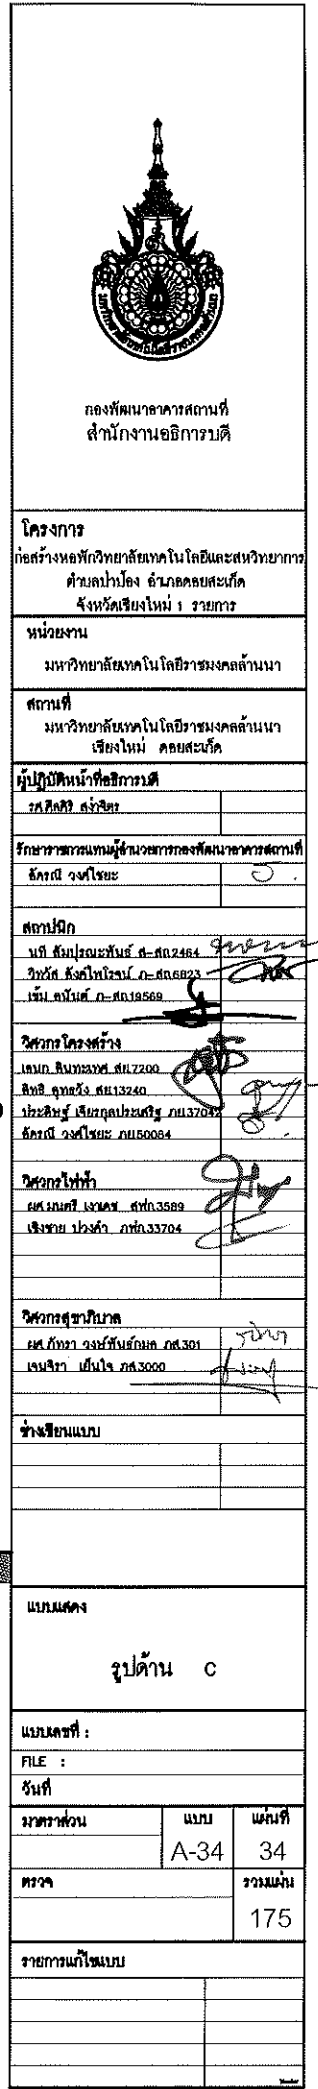 กองพัฒนาอาคารสถานที่
สำนักงานอธิการบดี
โครงการ
ก่อสร้างหอพักวิทยาลัยเทคโนโลยีและสหวิทยาการ
ตำบลป่าป้อง อำเภอดอยสะเก็ด
จังหวัดเชียงใหม่ 1 รายการ
หน่วยงาน
มหาวิทยาลัยเทคโนโลยีราชมงคลล้านนา
สถานที่
มหาวิทยาลัยเทคโนโลยีราชมงคลล้านนา
เชียงใหม่ ดอยสะเก็ด
ผู้ปฏิบัติหน้าที่อธิการบดี
รศ.ศีลศิริ สง่าจิตร
รักษาราชการแทนผู้อำนวยการกองพัฒนาอาคารสถานที่
อัครณี วงศ์ไชยะ
สถาปนิก
นที สัมปุรณะพันธ์ ส-สถ2464
วิทวัส สิงห์ไพโรจน์ ภ-สถ6823
เข้ม อนันต์ ภ-สถ19569
วิศวกรโครงสร้าง
เสนก สินทะเทศ สย.7200
สิทธิ อุทธวัง สย.13240
ประดิษฐ์ เจียรกุลประเสริฐ ภย.37042
อัครณี วงศ์ไชยะ ภย.50064
วิศวกรไฟฟ้า
ผศ.มนตรี เงาเดช สฟก.3589
เชิงชาย ปวงคำ ภฟก.33704
วิศวกรสุขาภิบาล
ผศ.ภัทรา วงษ์พันธ์กมล ภส.301
เจนจิรา เย็นใจ ภส.3000
ช่างเขียนแบบ
แบบแสดง
รูปด้าน C
แบบเลขที่ :
FILE :
วันที่
มาตราส่วน แบบ แผ่นที่
A-34 34
ตรวจ รวมแผ่น
175
รายการแก้ไขแบบ